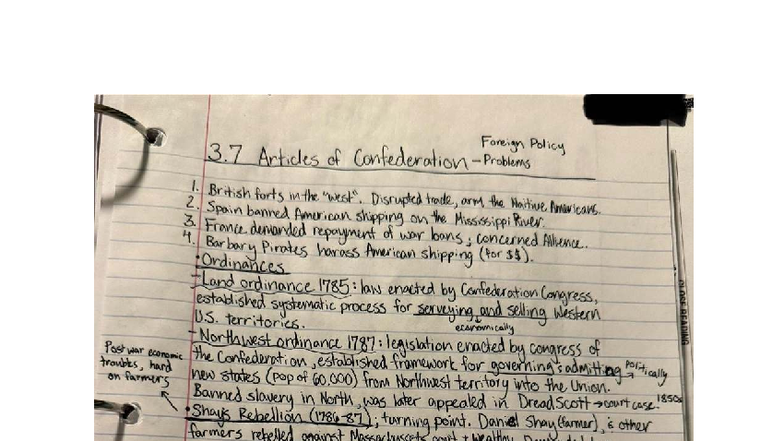 Foreign Policy
3.7 Articles of Confederation - Problems
1. British forts in the "west". Disrupted trade, arm the Naitive Americans.
2. Spain banned American shipping on the Mississippi River.
3. France demanded repayment of war loans; concerned Allience.
4. Barbary Pirates harass American shipping (for $$).
• Ordinances
- Land ordinance 1785: law enacted by Confederation Congress,
established systematic process for serveying and selling Western
U.S. territories.
economically
- Northwest ordinance 1787: legislation enacted by congress of
the Confederation, established framework for governing & admitting → politically
new states (pop of 60,000) from Northwest territory into the Union.
Banned slavery in North, was later appealed in Dread Scott → court case. 1850s
Post war economic
troubles, hard
on farmers
• Shays Rebellion (1786-87); turning point. Daniel Shay (farmer), & other
farmers rebelled against Massachussets court & wealthy